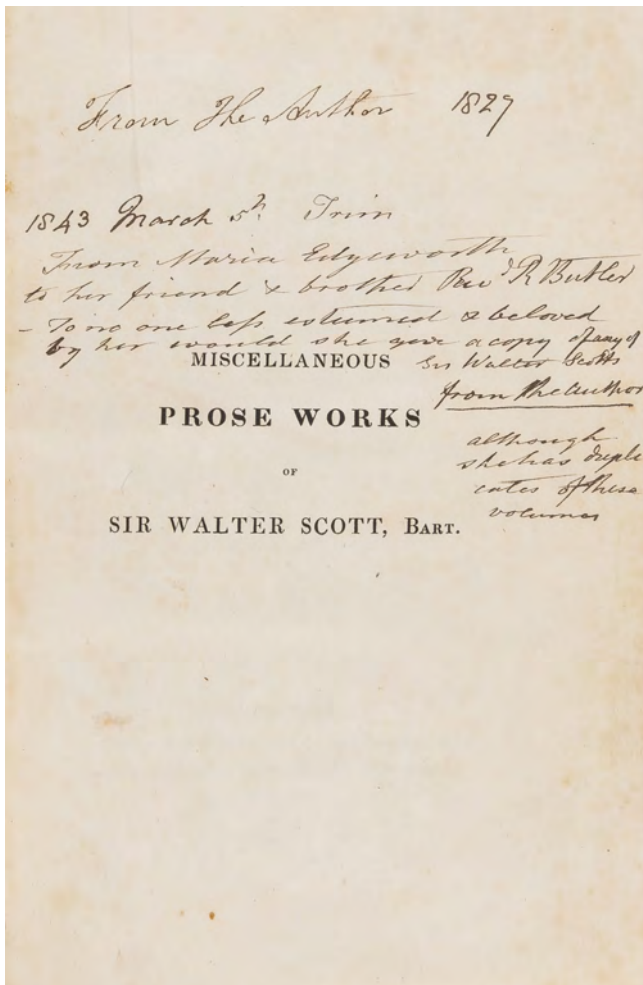 From The Author 1827
1843 March 5th. Trim
From Maria Edgeworth
to her friend & brother Revd R Butler
- To no one less esteemed & beloved
by her would she give a copy of any of
Sir Walter Scotts
from the author
although
she has dupli
cates of these
volumes
MISCELLANEOUS
PROSE WORKS
OF
SIR WALTER SCOTT, BART.